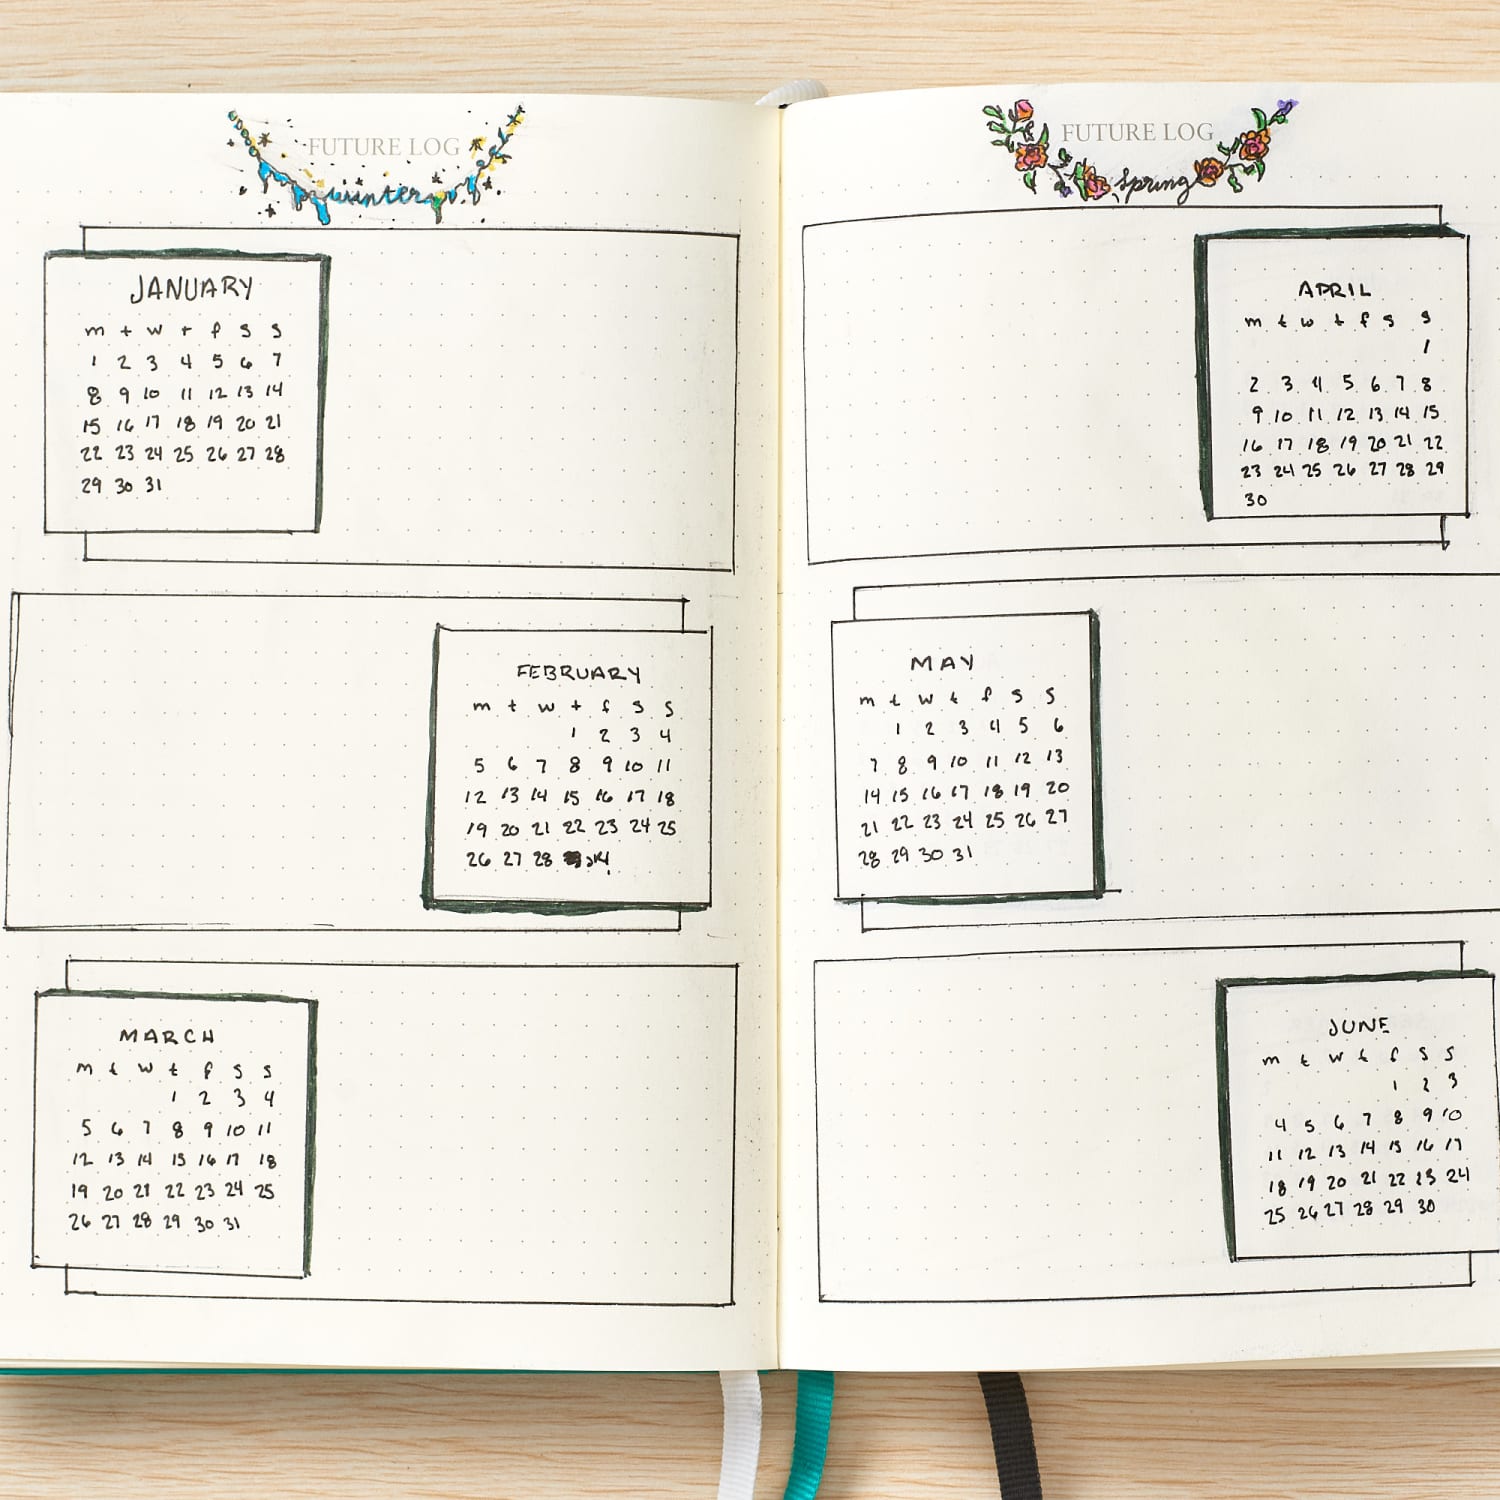 FUTURE LOG
winter
JANUARY
m t w t f s s
1 2 3 4 5 6 7
8 9 10 11 12 13 14
15 16 17 18 19 20 21
22 23 24 25 26 27 28
29 30 31
FEBRUARY
m t w t f s s
1 2 3 4
5 6 7 8 9 10 11
12 13 14 15 16 17 18
19 20 21 22 23 24 25
26 27 28
MARCH
m t w t f s s
1 2 3 4
5 6 7 8 9 10 11
12 13 14 15 16 17 18
19 20 21 22 23 24 25
26 27 28 29 30 31
FUTURE LOG
Spring
APRIL
m t w t f s s
1
2 3 4 5 6 7 8
9 10 11 12 13 14 15
16 17 18 19 20 21 22
23 24 25 26 27 28 29
30
MAY
m t w t f s s
1 2 3 4 5 6
7 8 9 10 11 12 13
14 15 16 17 18 19 20
21 22 23 24 25 26 27
28 29 30 31
JUNE
m t w t f s s
1 2 3
4 5 6 7 8 9 10
11 12 13 14 15 16 17
18 19 20 21 22 23 24
25 26 27 28 29 30